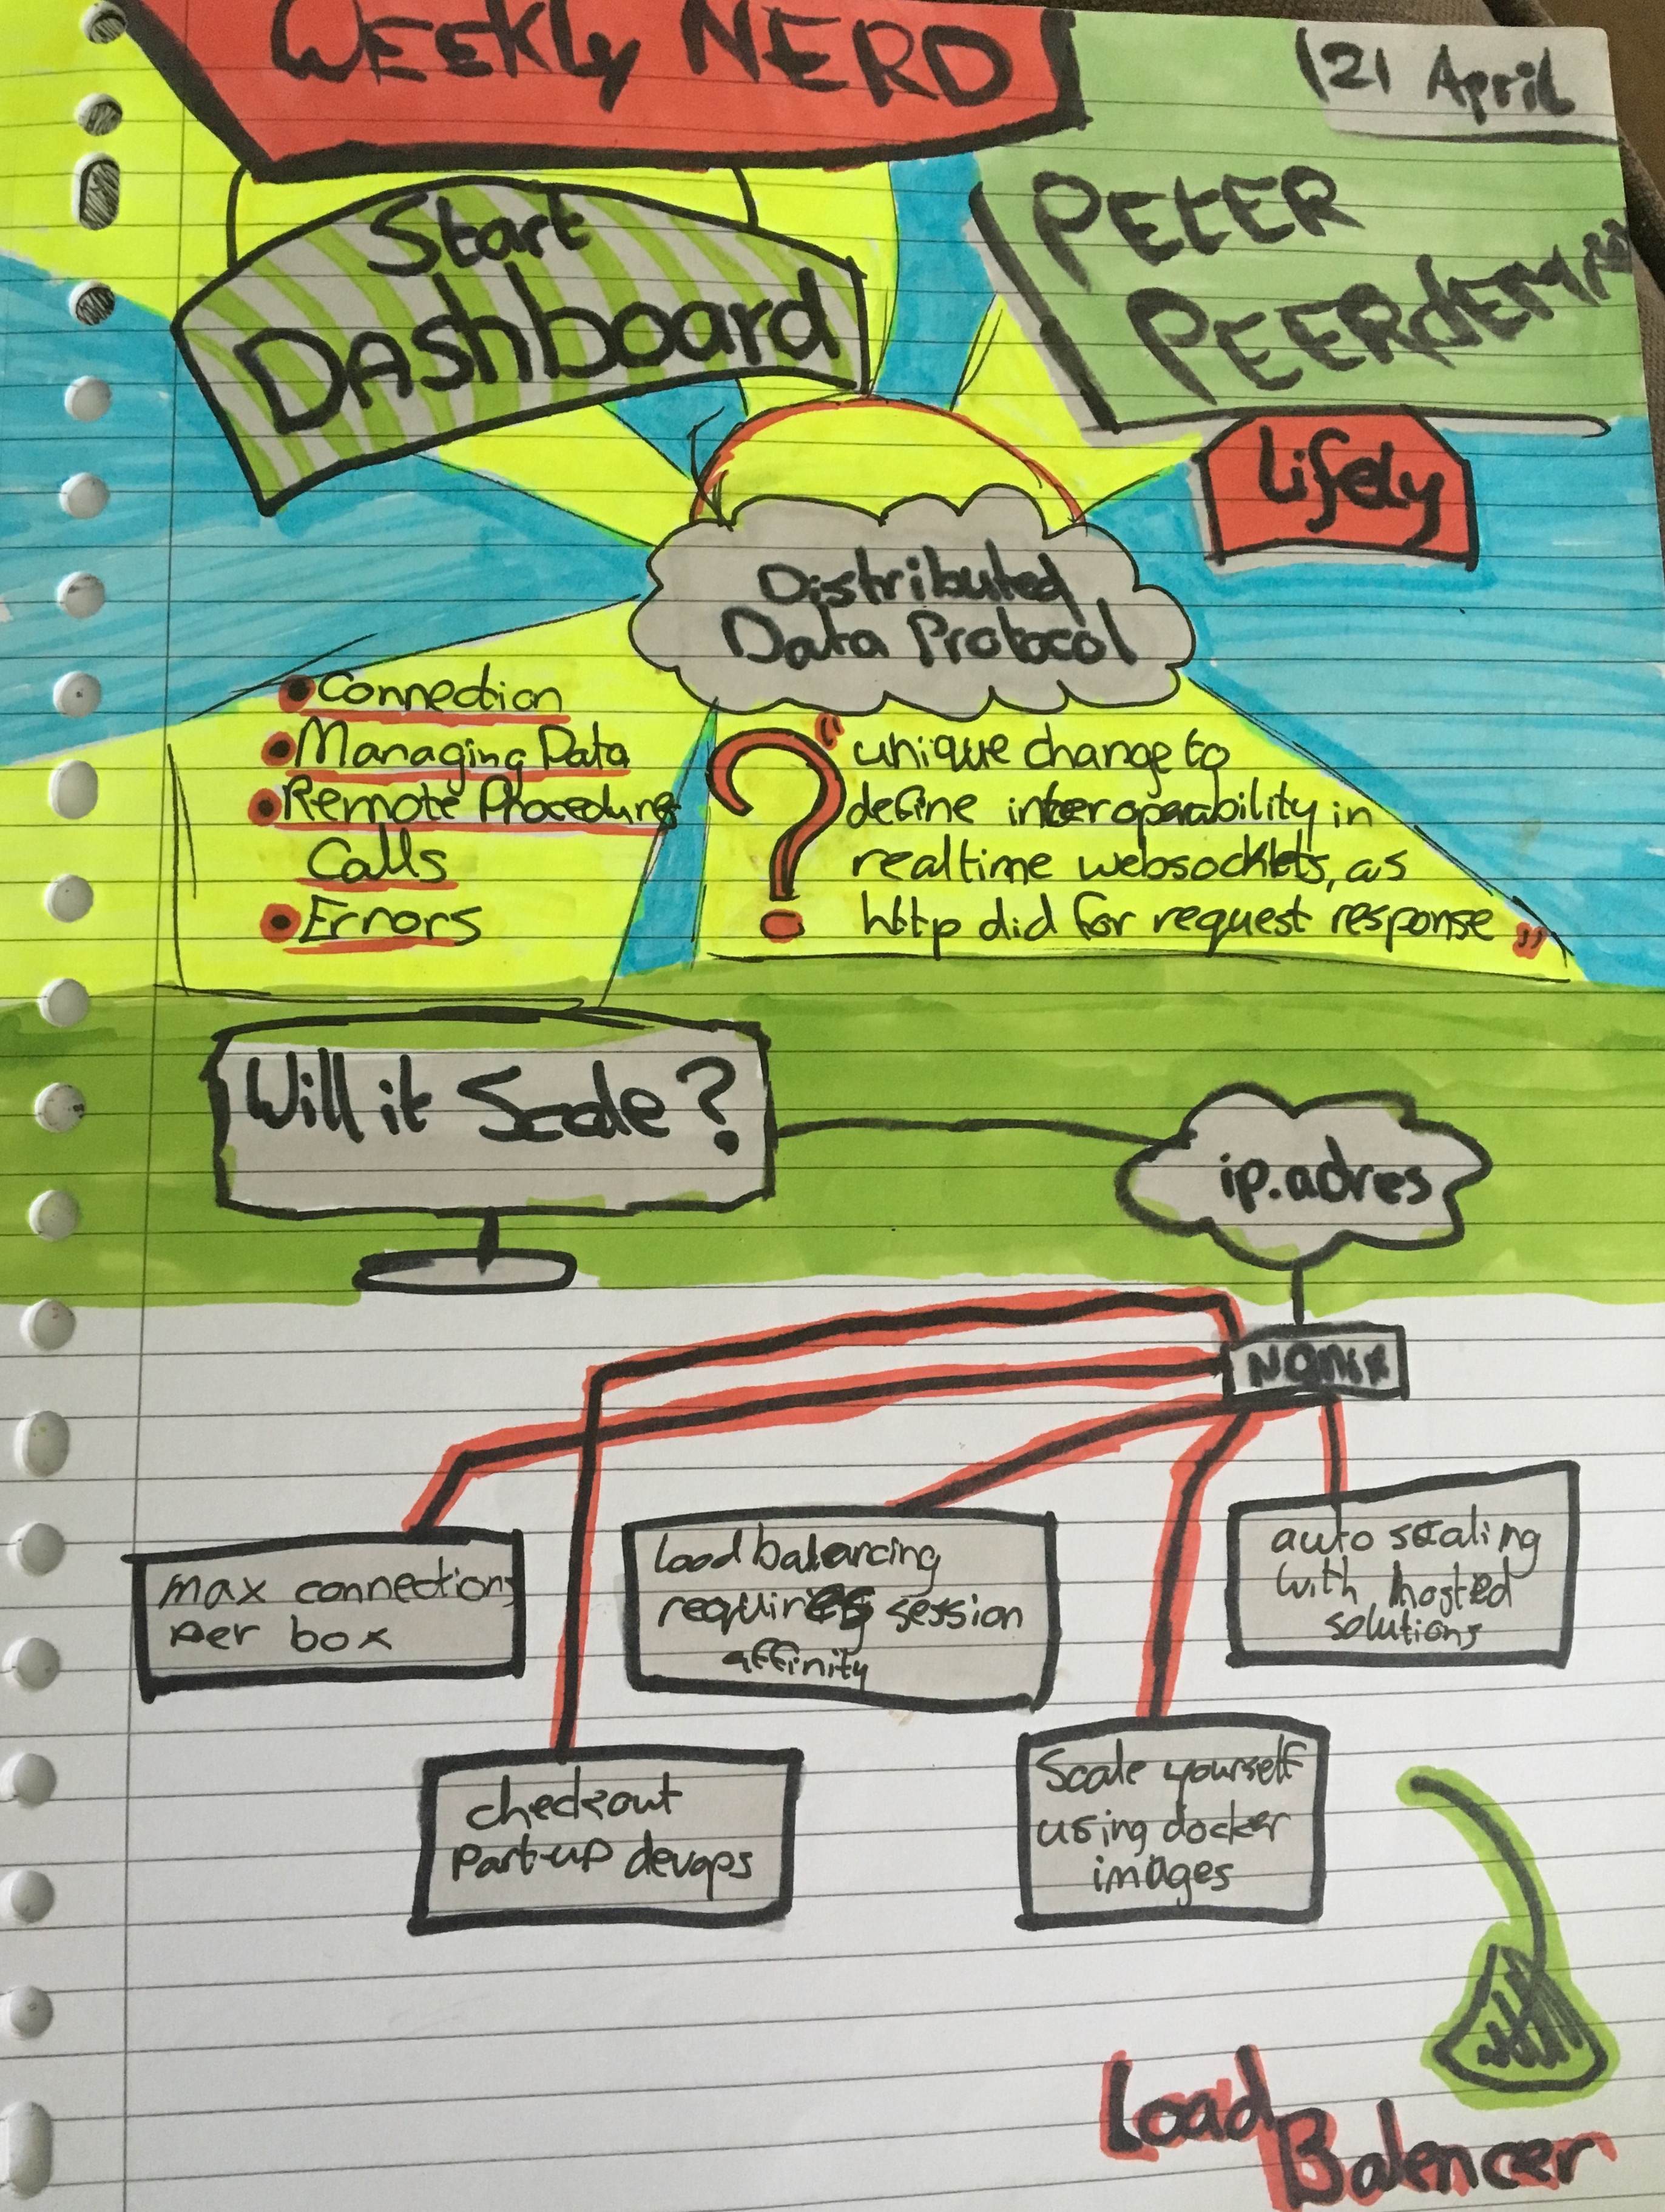 WEEKLY NERD
21 April
Start
DAshboard
PETER
PEERDEMAN
Lifely
Distributed
Data Protocol
Connection
Managing Data
Remote Procedure
Calls
Errors
? "unique change to
define interoperability in
realtime websockets, as
http did for request response"
Will it Scale?
ip.adres
NGinx
max connections
per box
load balancing
requires session
affinity
auto scaling
with hosted
solutions
checkout
part-up devops
Scale yourself
using docker
images
Load
Balencer